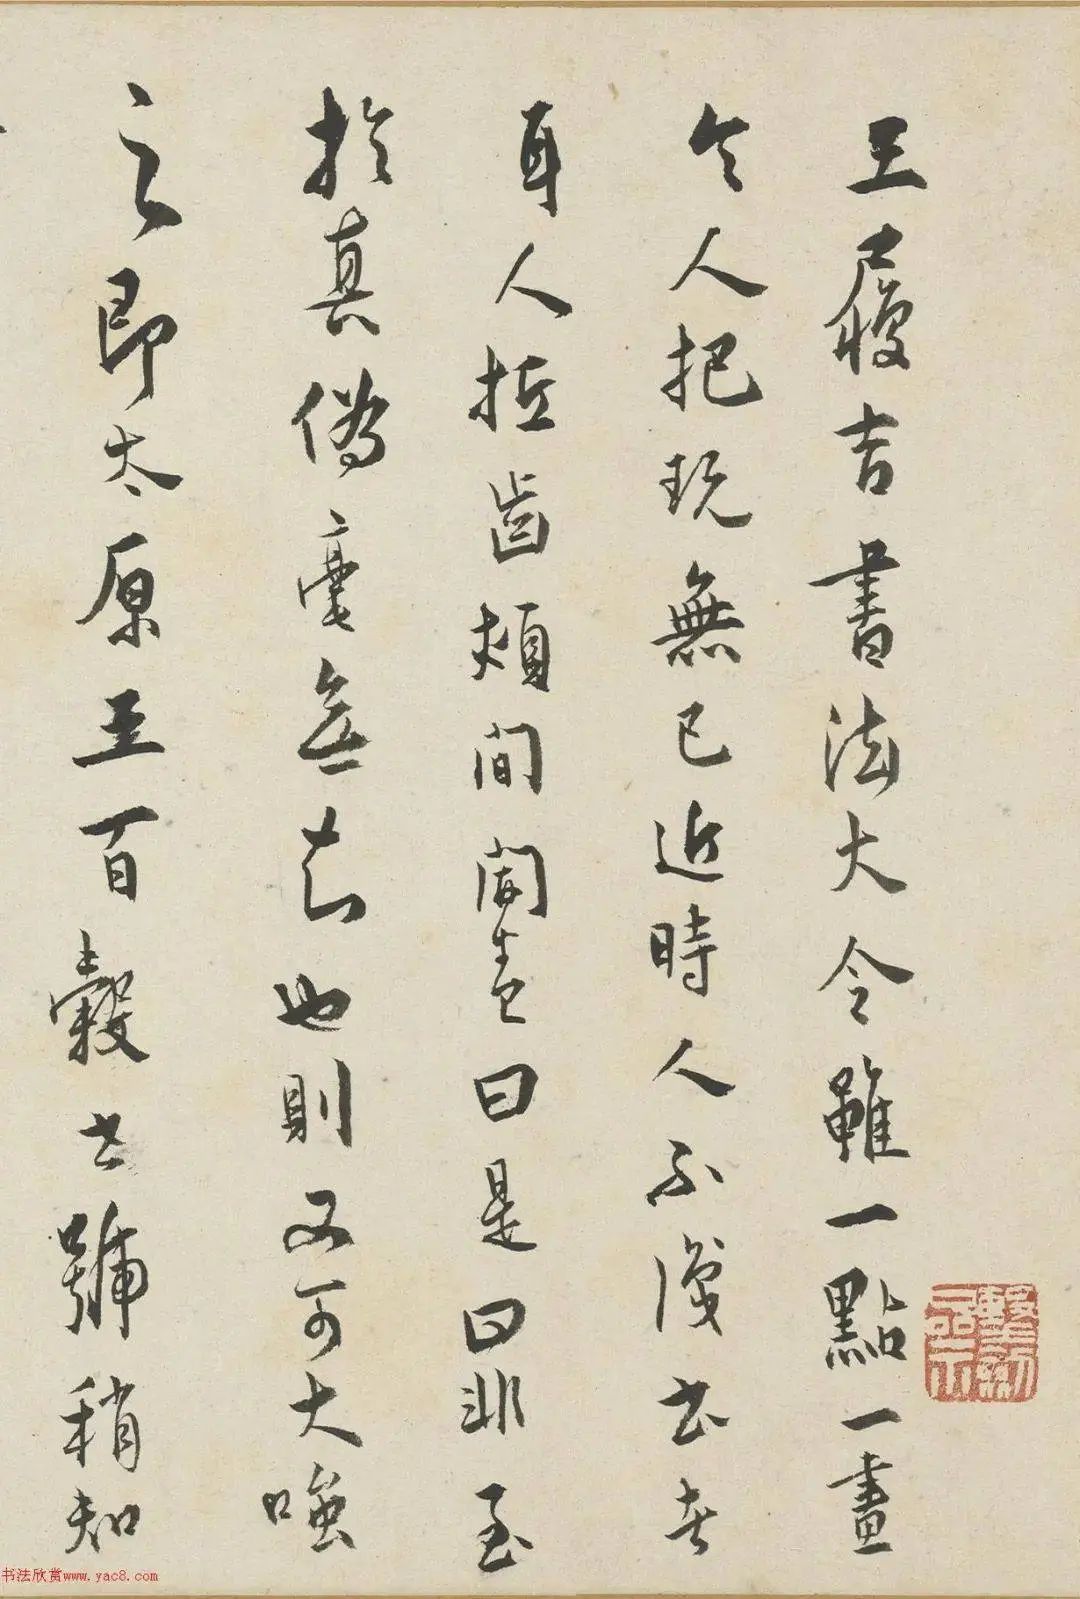 王履吉書法大令雖一點一畫
令人把玩無已近時人不識書者
耳人拄齒頰間開卷曰是曰非至
於真偽毫無也則又可大嗤
之即太原王百穀世號稍知
书法欣赏www.yac8.com